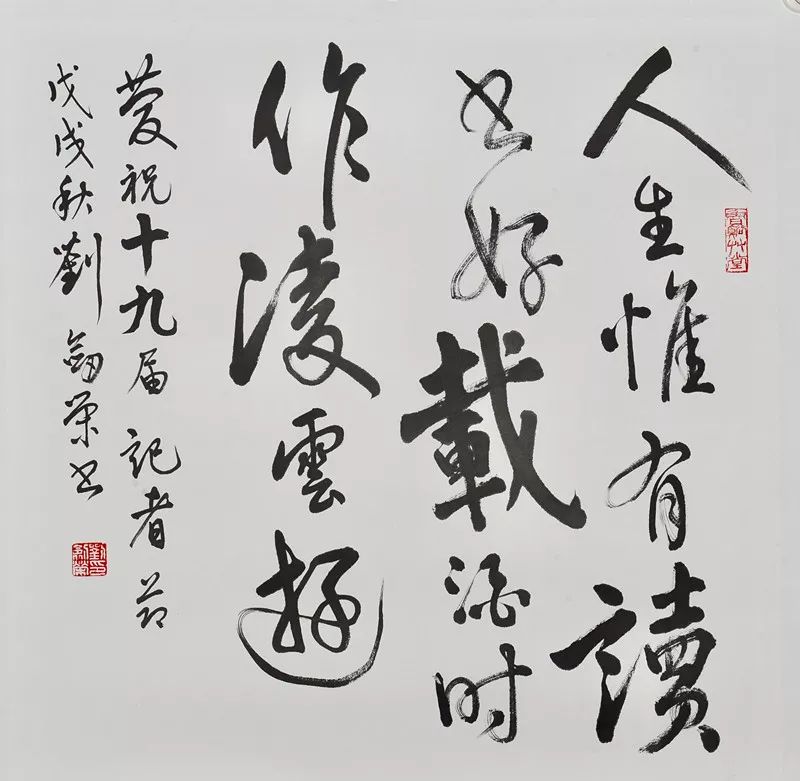 人生惟有讀
书好載酒时
作凌雲遊
慶祝十九届記者节
戊戌秋劉劍榮书